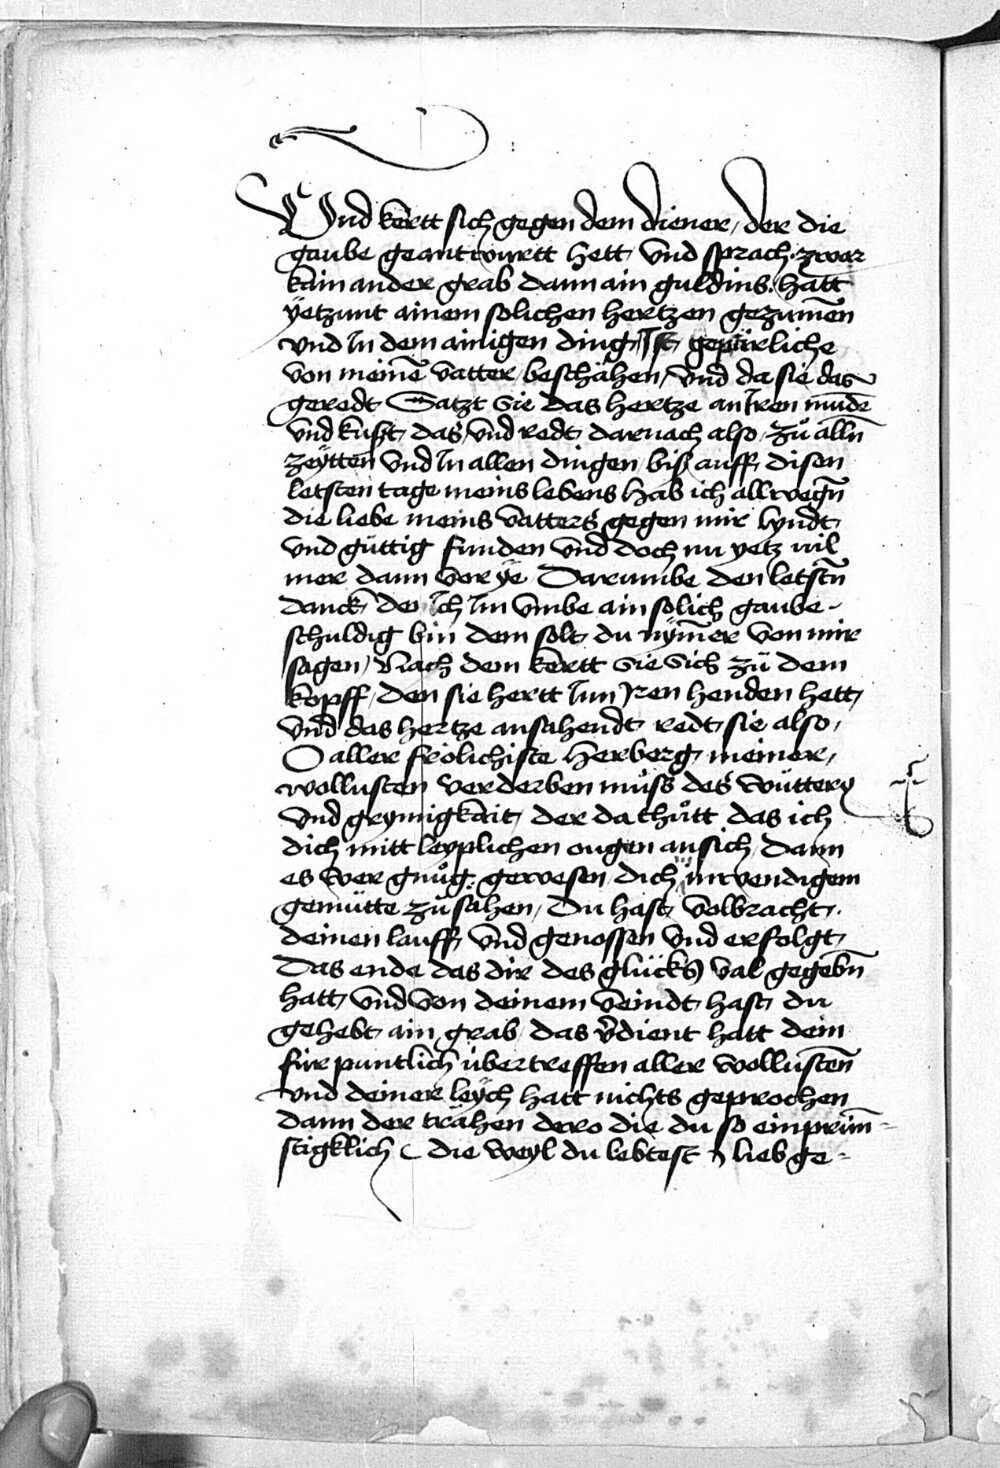 Vnd kertt sich gegen dem diener / der die
gaube geantwurtt hett / vnd sprach · zwar
kain ander grab dann ain guldins · hatt
yetzunt ainem solichen hertzen gezumen̄
vnd In dem ainigen ding / Ist geparliche
von meinē vatter / beschähen / vnd da sie das
geredt Satzt sie das hertze an Iren mundē
vnd kußt das / vnd redt darnach also / Zů allñ
zeytten vnd In allen dingen / biß auff disen
letsten tage meins lebens hab ich allwegñ
die liebe meins vatters gegen mir lyndt
vnd güttig funden vnd doch nu yetz vil
mer dann vor ye / Darumbe den letstñ
danck / den Ich Im vmbe ain solich gaube -
schuldig bin dem solt du nym̄er von mir
sagen / Nach dem kertt sie sich zů dem
kopff / den sie hertt Inn Iren henden hett /
vnd das hertze ansahendt redt sie also /
O aller frölichiste herberg / meiner /
wollusten verderben müss des wüttery
vnd grymigkait / der da thůtt das ich
dich mitt leyplichen ougen ansich / dann
es wer gnůg gewesen / dich inwendigem
gemütte zů sahen / Du hast volbracht ·
deinen lauff / vnd genossen vnd erfolgt /
Das ende das dir des glücks val gegebñ
hatt / vnd von deinem veindt hast du
gehebt ain grab / das v̄dient hatt dein
für puntlich übertreffen aller wollustēn
vnd deiner leych hatt nichts geprochen
dann der trähen dero die du so einprün̄-
stigklich / die weyl du lebtest / lieb ge-